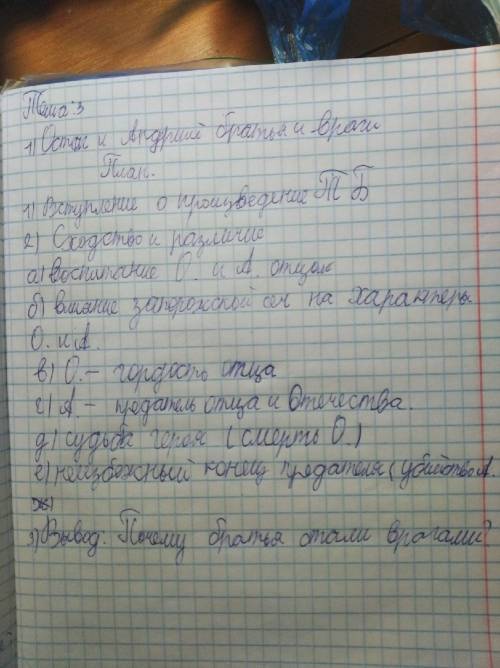 Тема: 3
1) Остап и Андрий братья и враги
План.
1) Вступление о произведение Т Б
2) Сходство и различие
а) воспитание О. и А. отцом
б) влияние запорожской сечи на характеры
О. и А.
в) О. – гордость отца
г) А. – предатель отца и Отечества.
д) судьба героя (смерть О.)
е) неизбежный конец предателя (убийство А.
3) Вывод: Почему братья стали врагами?